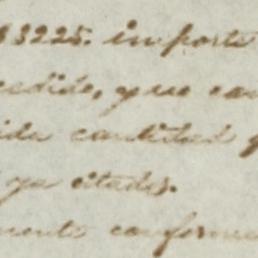 13225. importe
cedido, que can
ida cantidad q
ya citados.
mente conforme